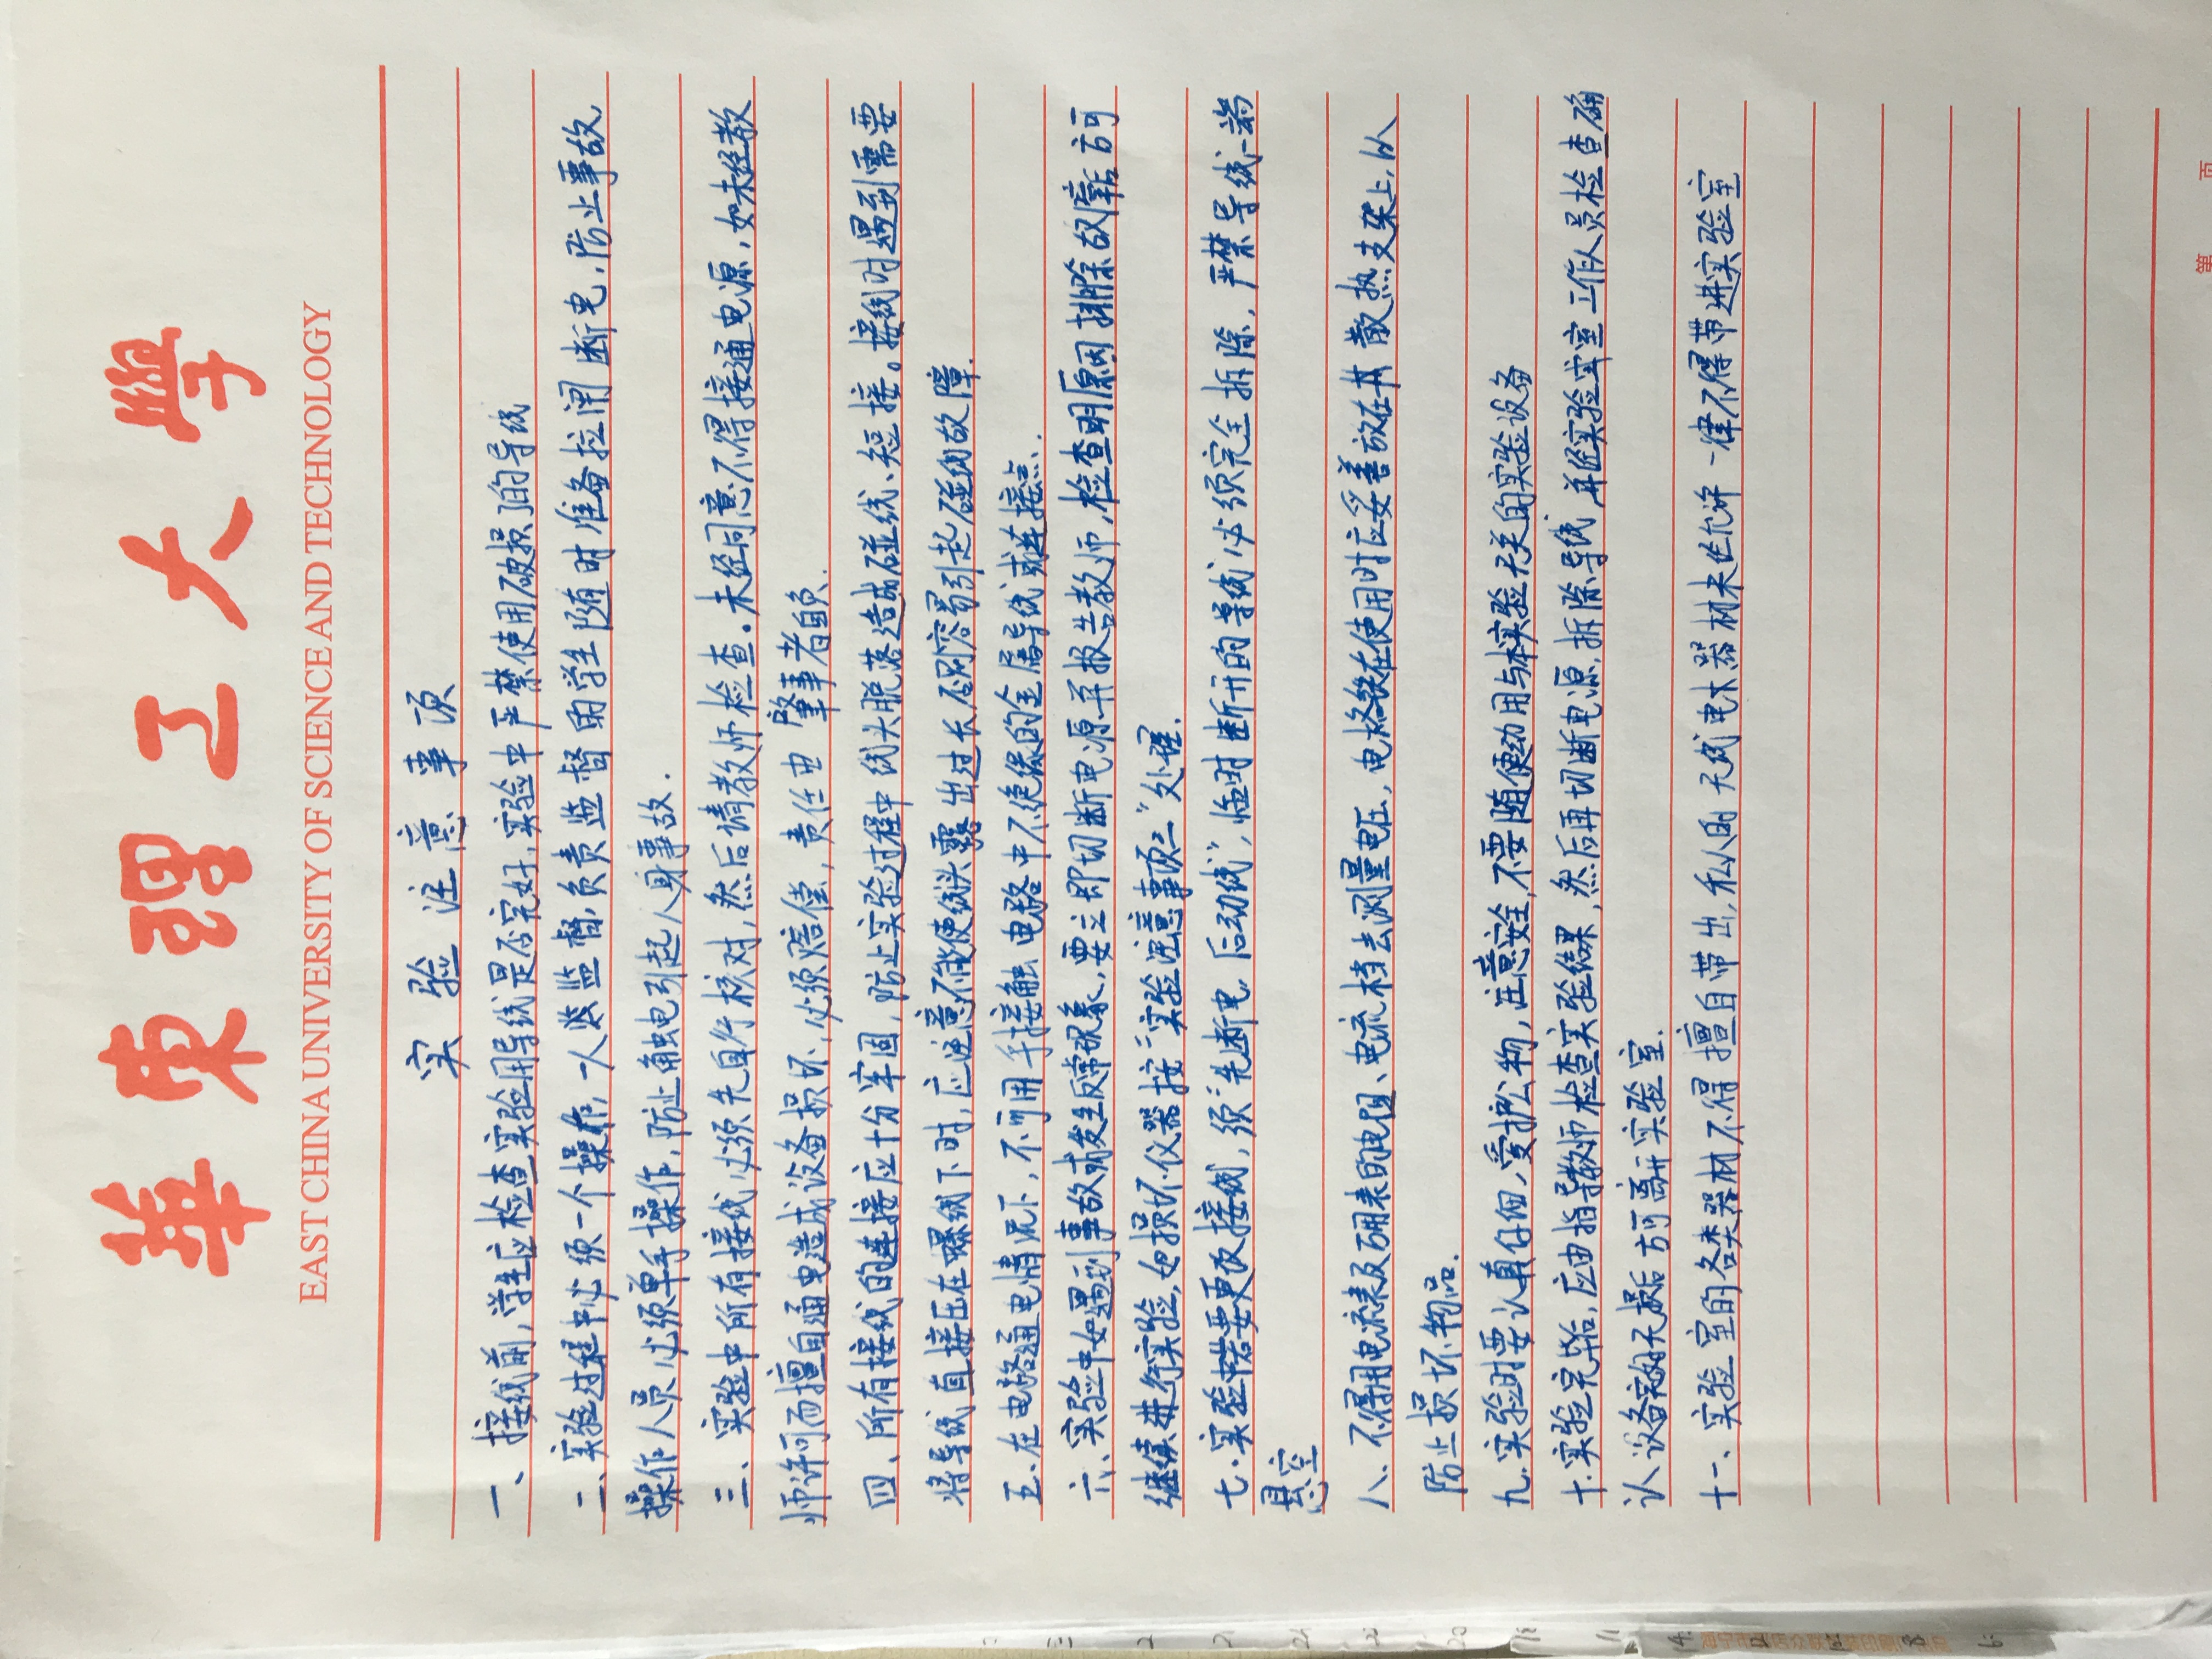 華東理工大學
EAST CHINA UNIVERSITY OF SCIENCE AND TECHNOLOGY
实验注意事项
一、接线前，学生应检查实验用导线是否完好，实验中严禁使用破损的导线
二、实验过程中必须一个操作，一人监监督，负责监督的学生随时准备拉闸断电，防止事故，
操作人员必须单手操作，防止触电引起人身事故.
三、实验中所有接线，必须先自行核对，然后请教师检查。未经同意不得接通电源，如未经教
师许可而擅自通电造成设备损坏，必须赔偿，责任由肇事者自负.
四、所有接线的连接应十分牢固，防止实验过程中线头脱落造成碰线、短接。接线时遇到需要
将导线直接压在螺丝下时，应注意不能使线头露出过长，否则容易引起碰线故障.
五、在电路通电情况下，不可用手接触电路中不绝缘的金属导线或连接点.
六、实验中如遇到事故或发生反常现象，要立即切断电源并报告教师，检查明原因排除故障后方可
继续进行实验，如损坏仪器按“实验注意事项三”处理.
七、实验中若要更改接线，须“先断电，后动线”，临时断开的导线必须完全拆除，严禁导线一端
悬空
八、不得用电流表及万用表的电阻、电流档去测量电压，电烙铁在使用时应妥善放在其散热支架上，以
防止损坏物品.
九、实验时要认真仔细，爱护公物，注意安全，不要随便动用与本实验无关的实验设备
十、实验完毕后，应由指导教师检查实验结果，然后再切断电源，拆除导线，并经实验室室工作人员检查确
认设备完好无损后方可离开实验室.
十一、实验室的各类器材不得擅自带出，私人的无线电器材未经允许一律不得带进实验室
第 页